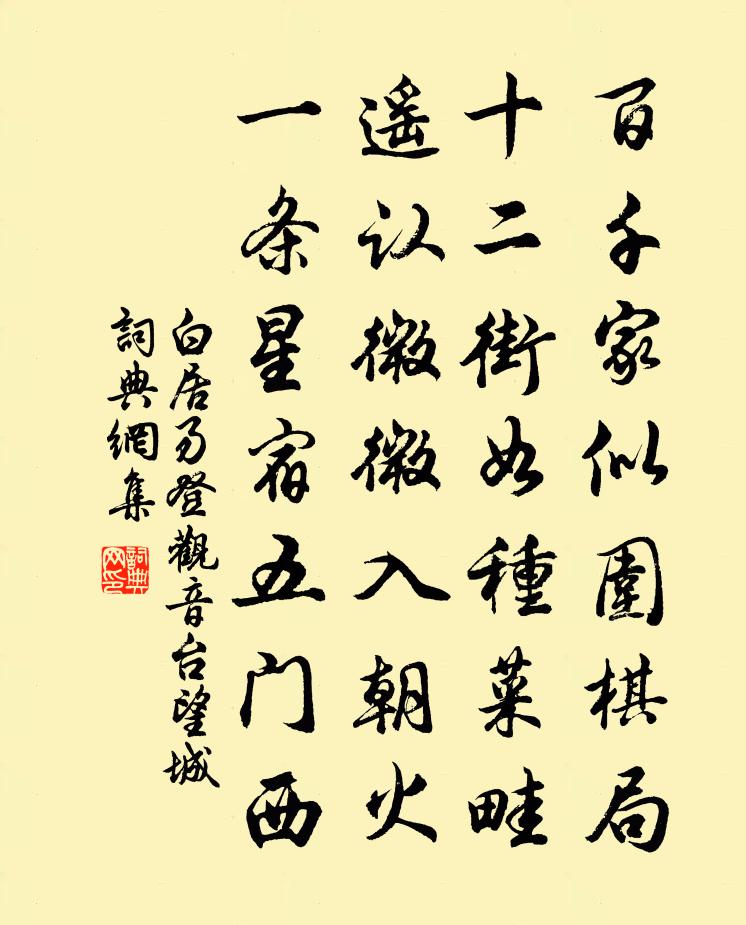 百千家似圍棋局
十二街如種菜畦
遥认微微入朝火
一条星宿五门西
白居易登觀音台望城
詞典網集
詞典网印